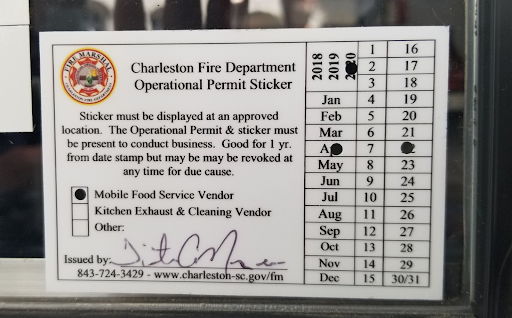 FIRE MARSHAL
Charleston Fire Department
Operational Permit Sticker
Sticker must be displayed at an approved
location. The Operational Permit & sticker must
be present to conduct business. Good for 1 yr.
from date stamp but may be may be revoked at
any time for due cause.
Mobile Food Service Vendor
Kitchen Exhaust & Cleaning Vendor
Other:
Issued by:
843-724-3429 - www.charleston-sc.gov/fm
2018 2019 1 16
2 17
3 18
Jan 4 19
Feb 5 20
Mar 6 21
7
May 8 23
Jun 9 24
Jul 10 25
Aug 11 26
Sep 12 27
Oct 13 28
Nov 14 29
Dec 15 30/31